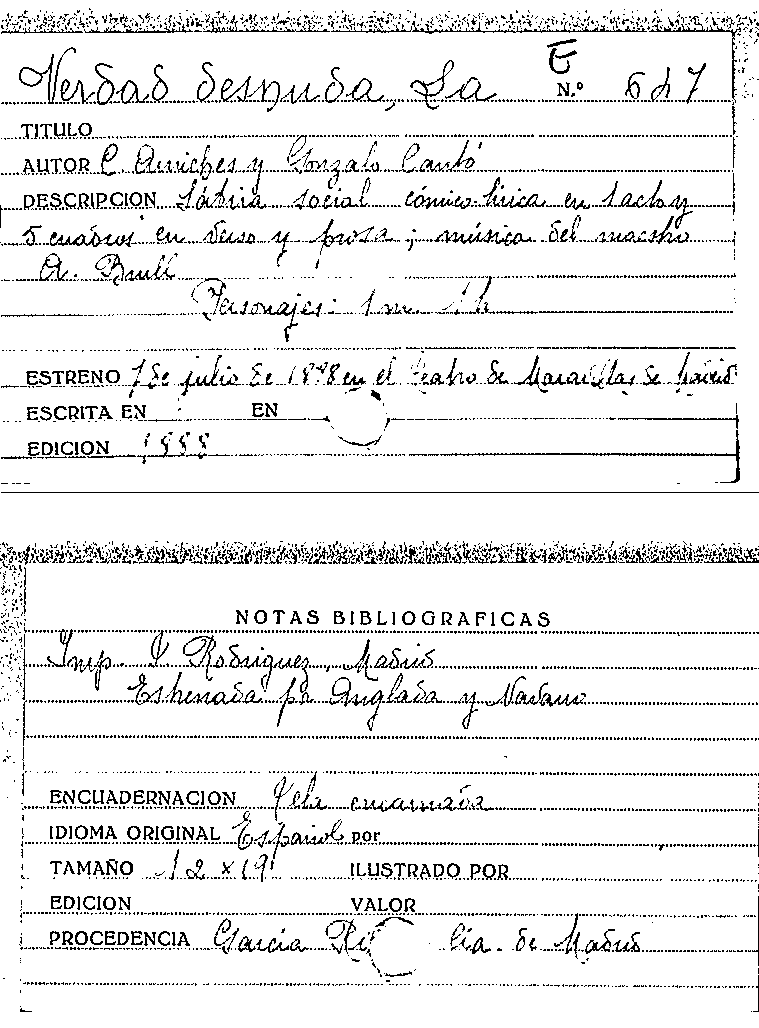 E
Verdad desnuda, La N.º 647
TITULO
AUTOR C. Arniches y Gonzalo Cantó
DESCRIPCION Sátira social cómico-lírica en 1 acto y
5 cuadros en verso y prosa; música del maestro
A. Brull
Personajes: 1 m. 1 h
ESTRENO 7 de julio de en el teatro de Maravillas de Madrid
ESCRITA EN EN
EDICION 1888
NOTAS BIBLIOGRAFICAS
Imp. Rodriguez, Madrid
Estrenada por Anglada y Navarro
ENCUADERNACION tela encarnada
IDIOMA ORIGINAL Español por
TAMAÑO 12 x 19 ILUSTRADO POR
EDICION VALOR
PROCEDENCIA Garcia Ri lia. de Madrid